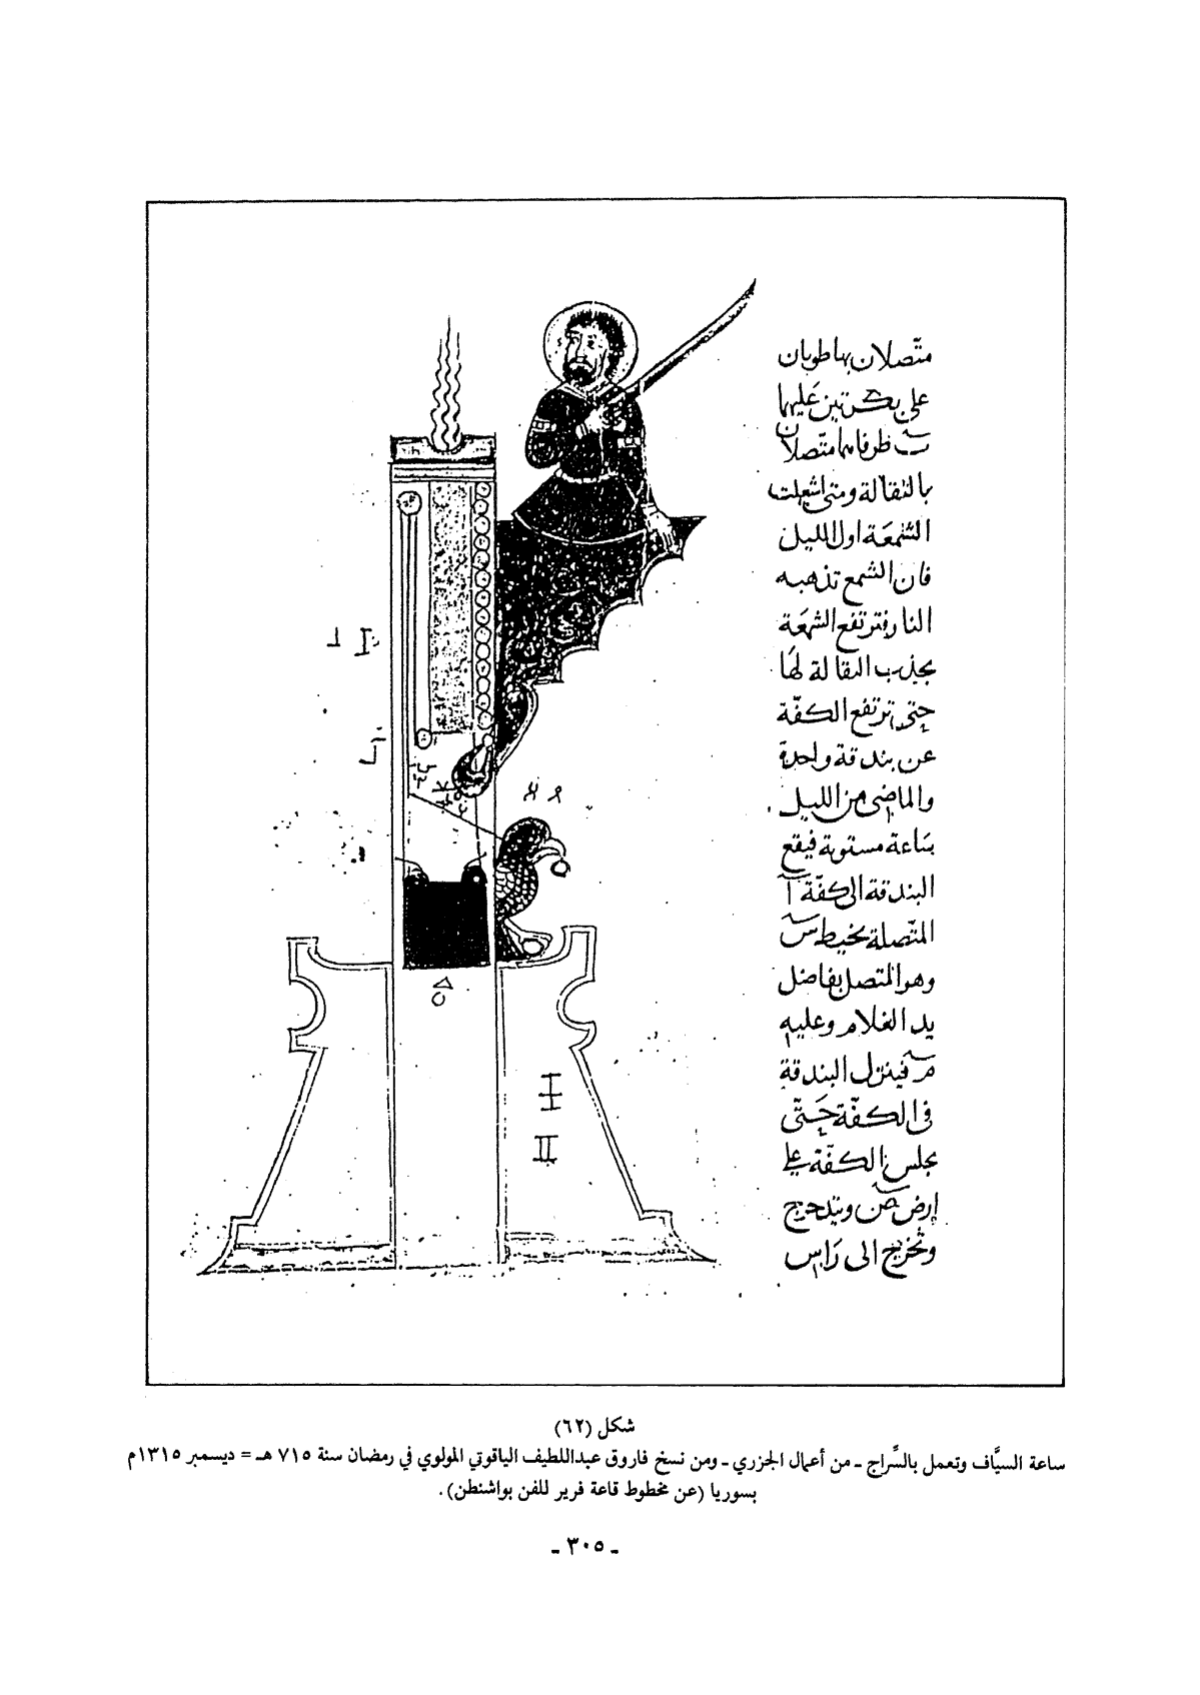 متّصلان بها طوبان
على بكرتين عليهما
ظرفاهما متّصلان
بالثقالة ومتى اشعلت
الشمعة اول الليل
فان الشمع تذهبه
النار فترتفع الشمعة
بجذب الثقالة لها
حتى ترتفع الكفّة
عن بندقة واحدة
والماضى من الليل
ساعة مستوية فيقع
البندقة الى كفّة آ
المتّصلة بخيط س
وهو المتصل بفاضل
يد الغلام وعليه
م فينزل البندقة
فى الكفّة حتّى
يجلس الكفّة على
ارض ص ويتدحرج
وتخرج الى راس
شكل (٦٢)
ساعة السيَّاف وتعمل بالسِّراج ـ من أعمال الجزري ـ ومن نسخ فاروق عبداللطيف الياقوتي المولوي في رمضان سنة ٧١٥ هـ = ديسمبر ١٣١٥م
بسوريا (عن مخطوط قاعة فرير للفن بواشنطن).
ـ ٣٠٥ ـ